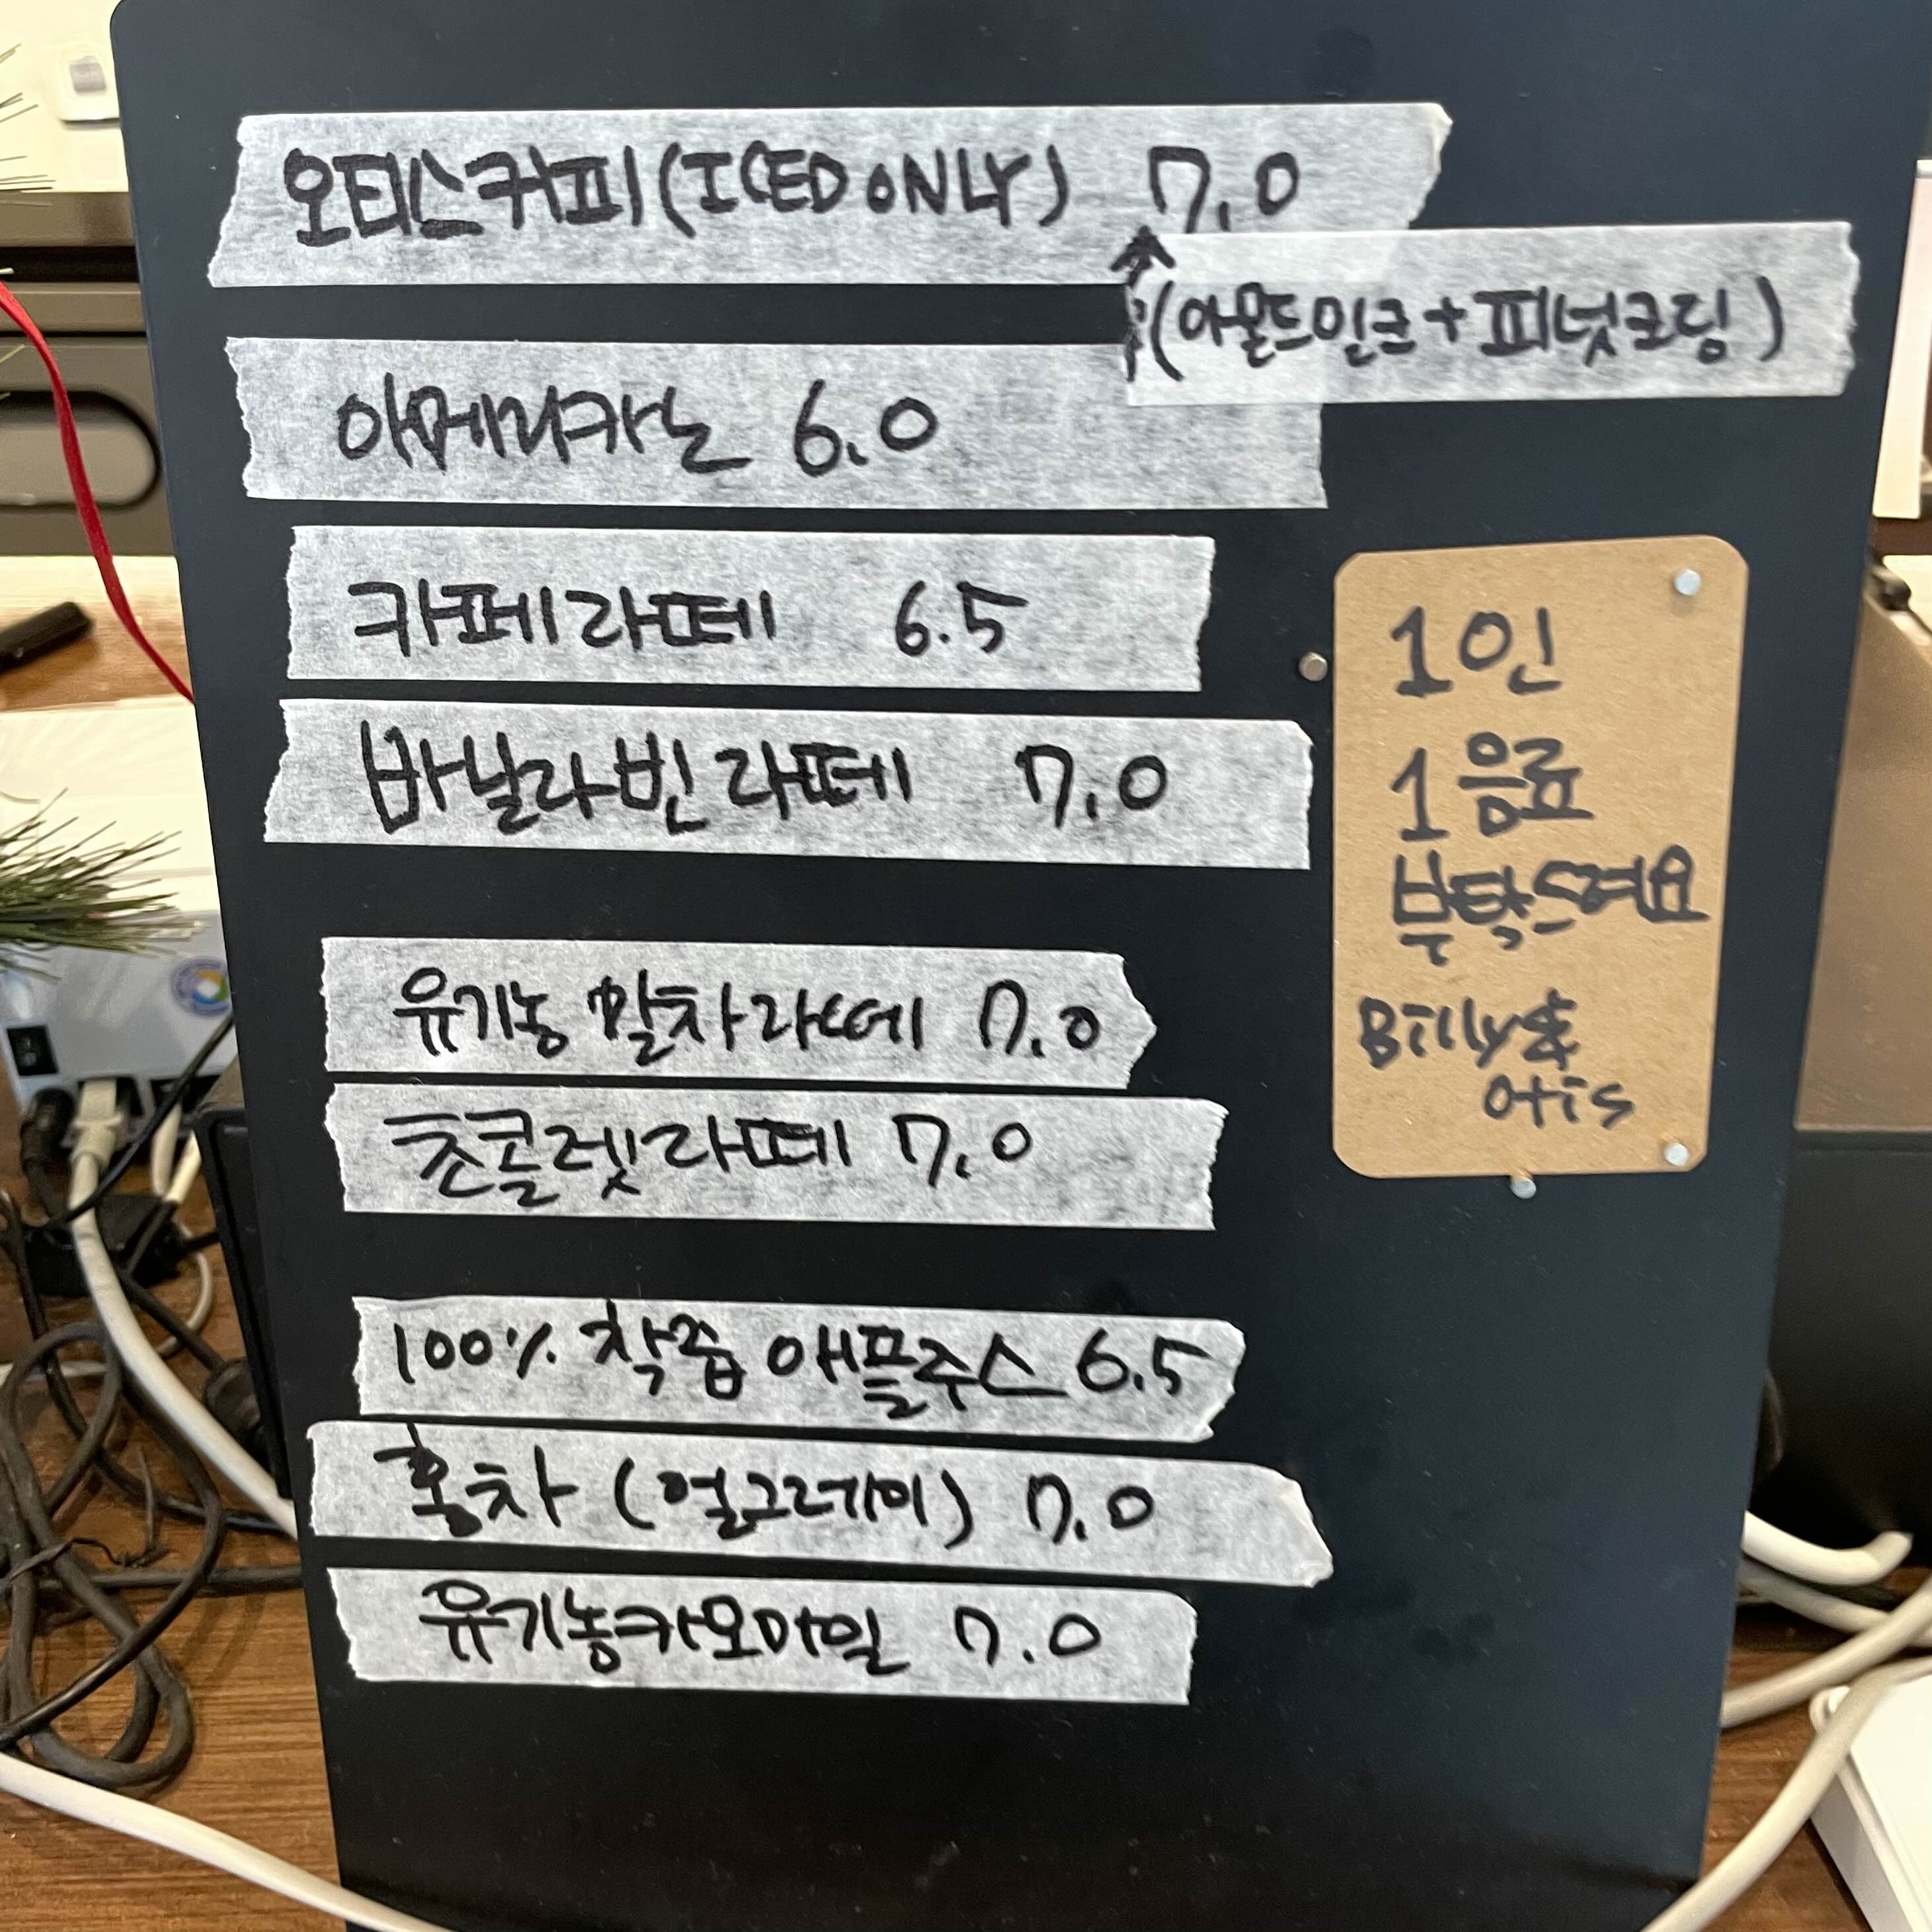 오티스커피(ICED ONLY) 7.0
(아몬드밀크+피넛크림)
아메리카노 6.0
카페라떼 6.5
바닐라빈라떼 7.0
유기농 말차라떼 7.0
초콜렛라떼 7.0
100% 착즙 애플주스 6.5
홍차 (얼그레이) 7.0
유기농카모마일 7.0
1인
1음료
부탁드려요
Billy&
otis